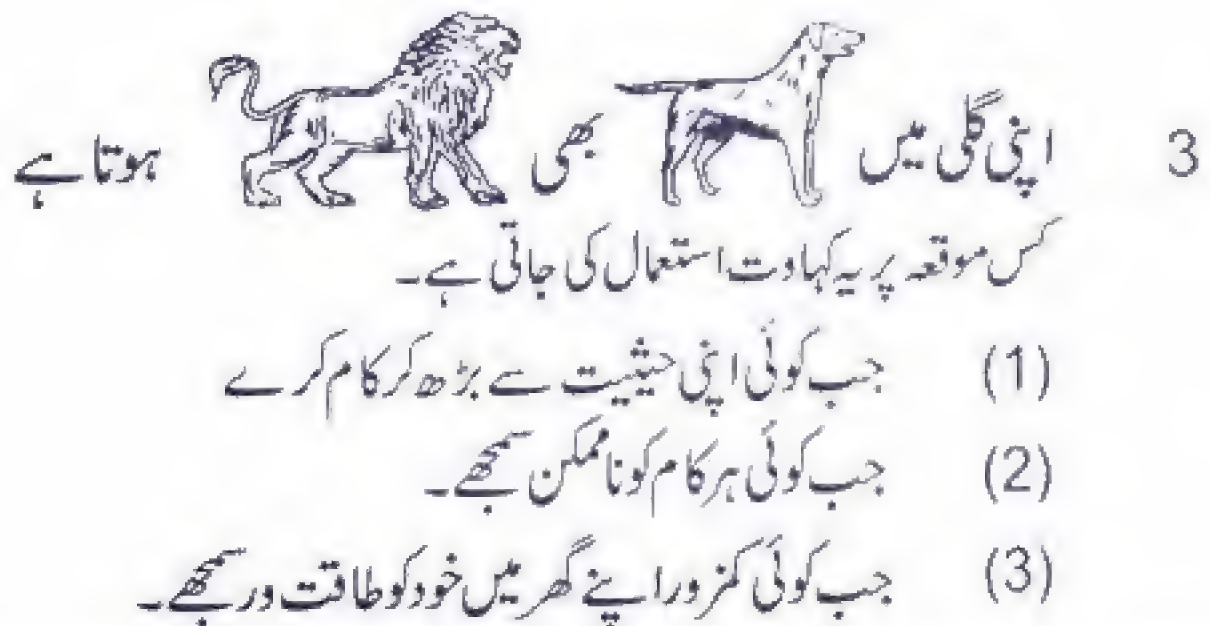 3 اپنی گلی میں بھی ہوتا ہے
کس موقعہ پر یہ کہاوت استعمال کی جاتی ہے۔
(1) جب کوئی اپنی حیثیت سے بڑھ کر کام کرے
(2) جب کوئی ہر کام کو ناممکن سمجھے۔
(3) جب کوئی کمزور اپنے گھر میں خود کو طاقت ور سمجھے۔